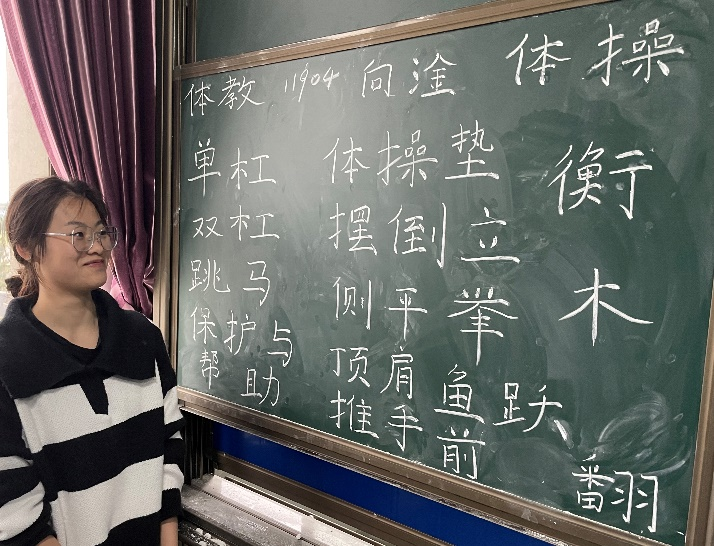 体教 11904 向淦 体操
单杠 体操垫 衡
双杠 摆倒立
跳马 侧平举 木
保护与
帮助
顶肩 鱼跃
推手 前翻